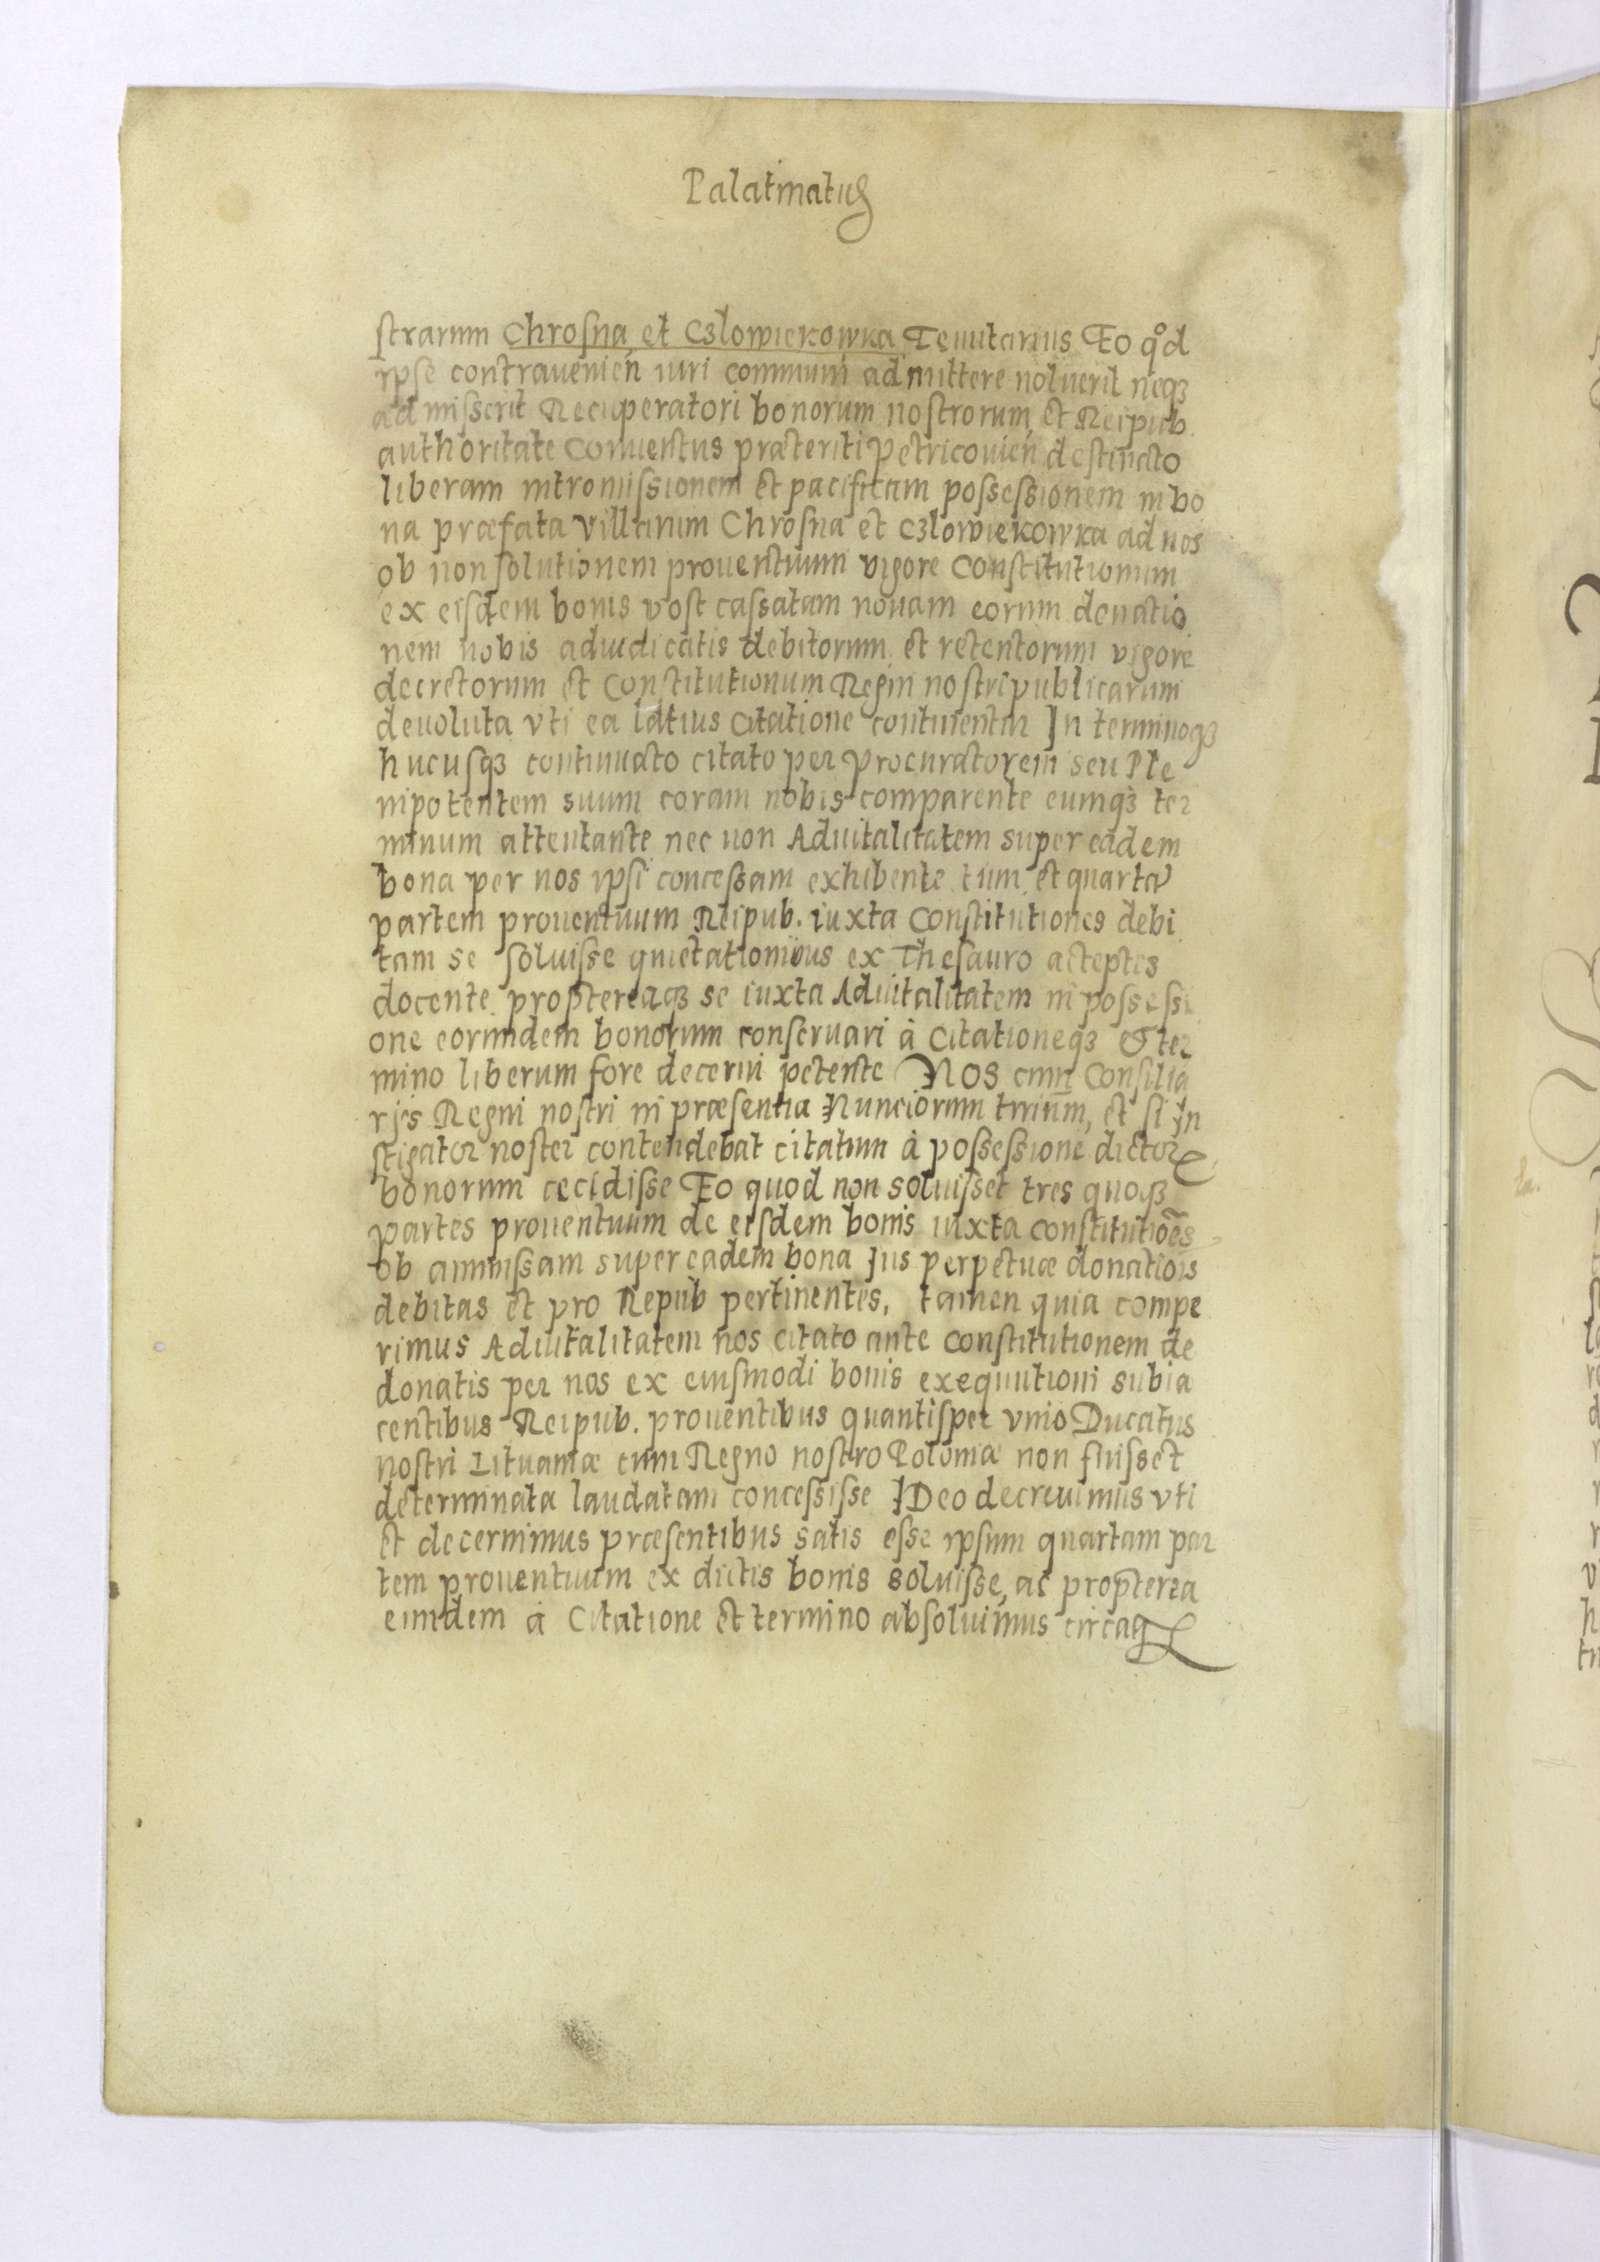 Palatinatus
strarum Chrosna et Czlowiekowka Tenutarius Eo qd
ipse contravenień iuri communi admittere noluerit neqꝫ
admisserit Recuperatori bonorum nostrorum et Reipub.
authoritate Conventus præteriti Petricovień destinato
liberam intromissionem et pacificam possessionem in bo
na præfata villarum Chrosna et Czlowiekowka ad nos
ob non solutionem proventuum vigore Constitutionum
ex eisdem bonis post cassatam novam eorum donatio
nem nobis adiudicatis debitorum et retentorum vigore
decretorum et Constitutionum Regni nostri publicarum
devoluta vti ea latius Citatione continentur In terminoqꝫ
hucusqꝫ continuato citato per procuratorem seu Ple
nipotentem suum coram nobis comparente eumqꝫ ter
minum attentante nec non Advitalitatem super eadem
bona per nos ipsi concessam exhibente tum et quartā
partem proventuum Reipub. iuxta Constitutiones debi
tam se solvisse quietationibus ex Thesauro acceptis
docente proptereaqꝫ se iuxta Advitalitatem in possessi
one eorundem bonorum conservari à Citationeqꝫ & ter
mino liberum fore decerni petente Nos cum Consilia
rijs Regni nostri in præsentia Nunciorum trium, et si In
stigator noster contendebat citatum à possessione dictor
bonorum cecidisse Eo quod non solvisset tres quoqꝫ
partes proventuum de eisdem bonis iuxta constitutiōes
ob ammissam super eadem bona Jus perpetuæ donatiois
debitas et pro Repub pertinentes, tamen quia compe
rimus Advitalitatem nos citato ante Constitutionem de
donatis per nos ex eiusmodi bonis exequutioni subia
centibus Reipub. proventibus quantisper vnio Ducatus
nostri Lituaniæ cum Regno nostro Poloniæ non fuisset
determinata laudatam concessisse IDeo decrevimus vti
et decernimus præsentibus satis esse ipsum quartam par
tem proventuum ex dictis bonis solvisse, ac propterea
eundem à Citatione et termino absolvimus circaq
la.